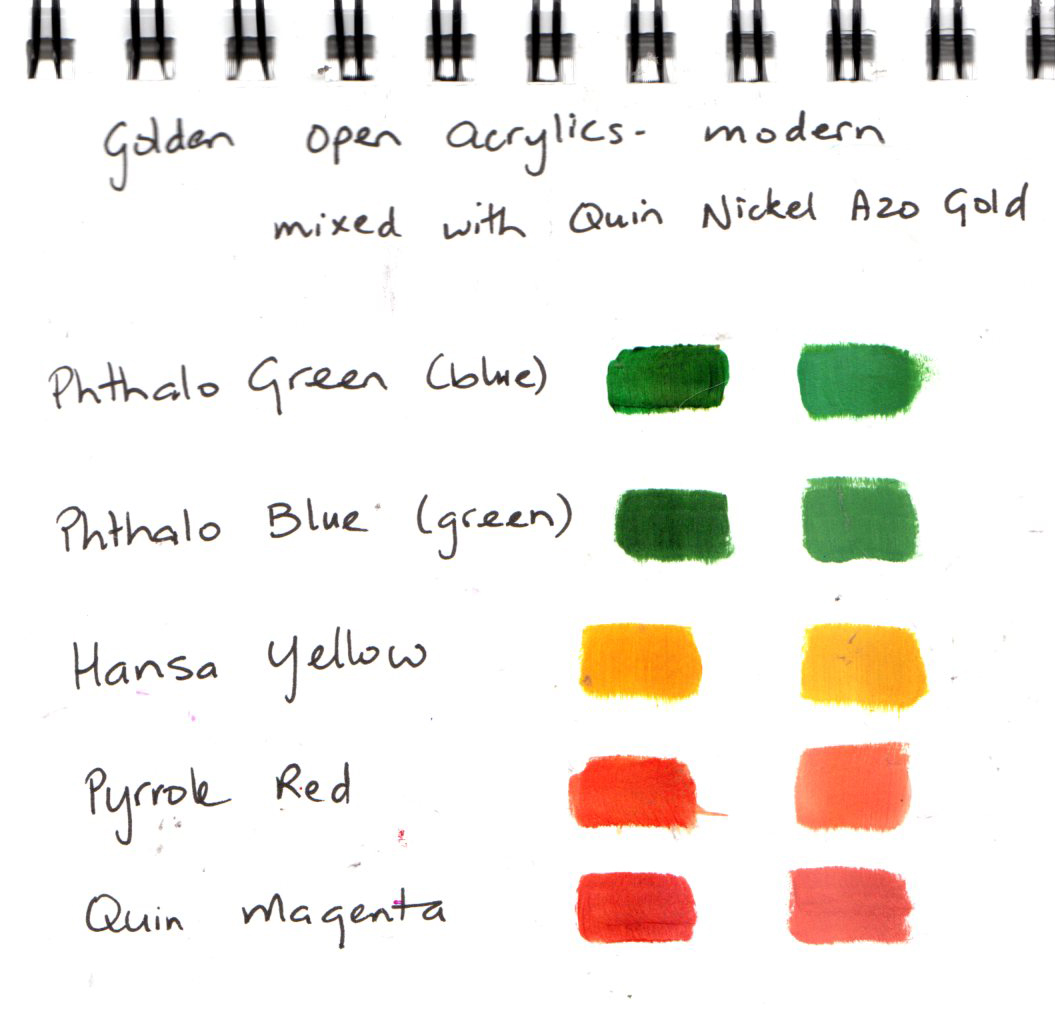 Golden Open Acrylics - modern
mixed with Quin Nickel Azo Gold
Phthalo Green (blue)
Phthalo Blue (green)
Hansa Yellow
Pyrrole Red
Quin Magenta